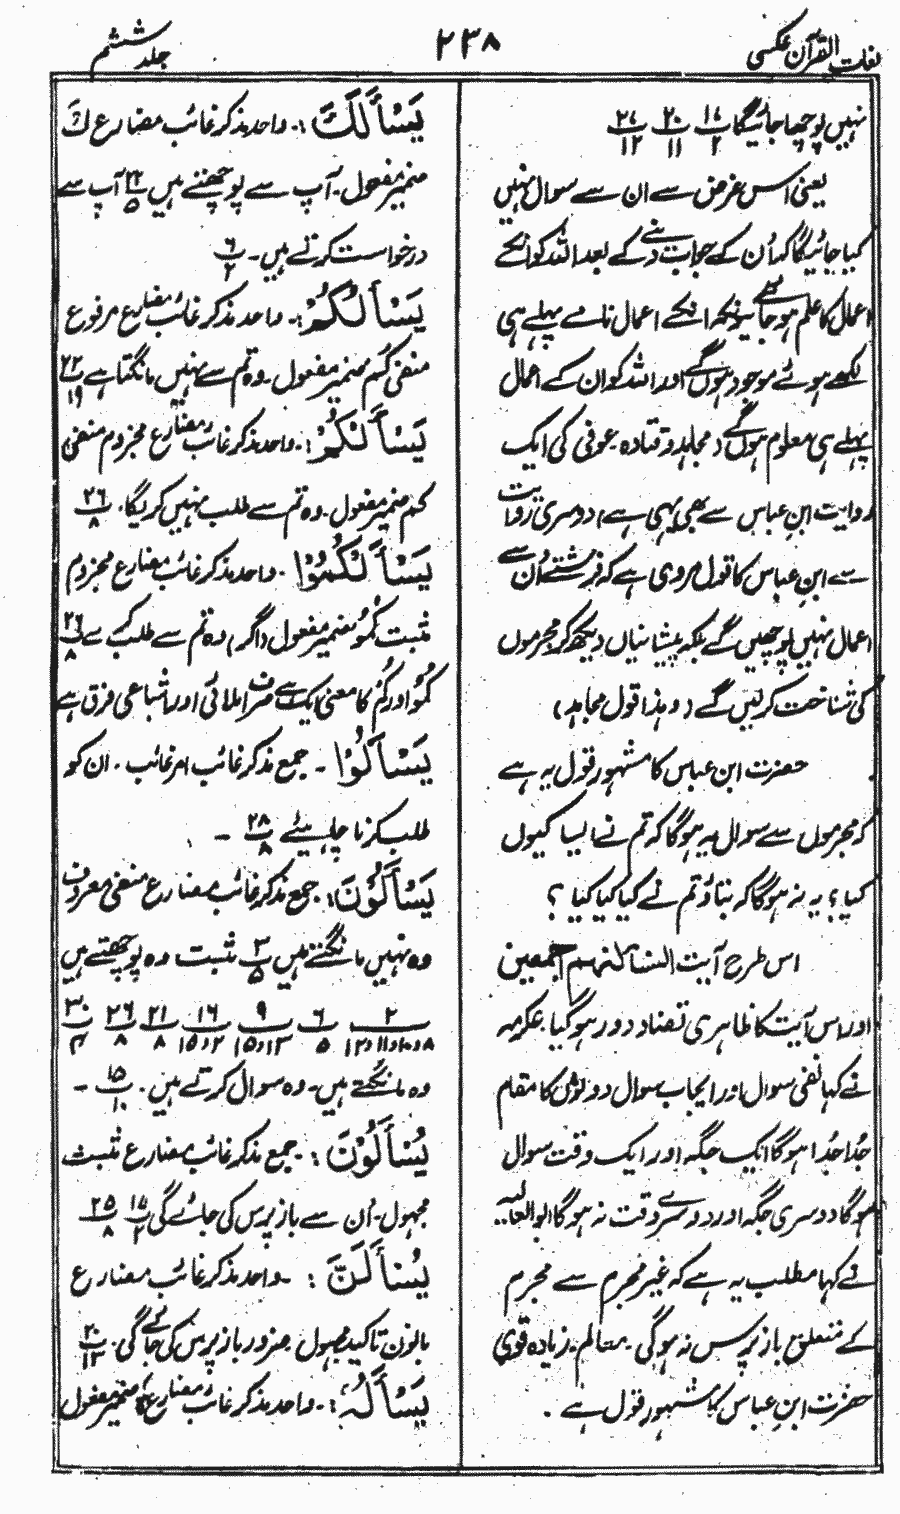 لغات القرآن عکسی
۲۳۸
جلد ششم
نہیں پوچھا جائیگا ۱۷/۲ ۲۰/۱۱ ۲۷/۱۲
یعنی اس غرض سے ان سے سوال نہیں
کیا جائیگا کہ اُن کے جواب دینے کے بعد اللہ کو انکے
اعمال کا علم ہو جائے کیونکہ انکے اعمال نامے پہلے ہی
لکھے ہوئے موجود ہوں گے اور اللہ کو ان کے اعمال
پہلے ہی معلوم ہوں گے (مجاہد و قتادہ) عوفی کی ایک
روایت ابن عباس سے بھی یہی ہے دوسری روایت
سے ابن عباس کا قول مروی ہے کہ فرشتے اُن سے
اعمال نہیں پوچھیں گے بلکہ پیشانیاں دیکھ کر مجرموں
کی شناخت کرلیں گے (و ہذا قول مجاہد)
حضرت ابن عباس کا مشہور قول یہ ہے
کہ مجرموں سے سوال یہ ہوگا کہ تم نے ایسا کیوں
کیا؟ یہ نہ ہوگا کہ بتاؤ تم نے کیا کیا کیا ؟
اس طرح آیت لنسألنہم اجمعین
اور اس آیت کا ظاہری تضاد دور ہو گیا۔ عکرمہ
نے کہا نفی سوال اور ایجاب سوال دونوں کا مقام
جُدا جُدا ہوگا ایک جگہ اور ایک وقت سوال
ہوگا دوسری جگہ اور دوسرے وقت نہ ہوگا ابو العالیہ
نے کہا مطلب یہ ہے کہ غیر مجرم سے مجرم
کے متعلق باز پرس نہ ہوگی۔ زیادہ قوی
حضرت ابن عباس کا مشہور قول ہے۔
یَسْأَلَکَ :۔ واحد مذکر غائب مضارع کَ
ضمیر مفعول۔ آپ سے پوچھتے ہیں ۲۲/۵ آپ سے
درخواست کرتے ہیں۔ ۶/۲
یَسْأَلُکُمْ :۔ واحد مذکر غائب مضارع مرفوع
منفی کُم ضمیر مفعول۔ وہ تم سے نہیں مانگتا ہے ۲۲/۱۹
یَسْأَلْکُمْ :۔ واحد مذکر غائب مضارع مجزوم منفی
کم ضمیر مفعول۔ وہ تم سے طلب نہیں کریگا۔ ۲۶/۸
یَسْأَلْکُمُوْا ۔ واحد مذکر غائب مضارع مجزوم
مثبت کُمُو ضمیر مفعول (اگر) وہ تم سے طلب کرے ۲۶/۸
کُمُو اور کُم کا معنی ایک ہے صرف املائی اور اشباعی فرق ہے
یَسْأَلُوْا ۔ جمع مذکر غائب امر غائب ۔ ان کو
طلب کرنا چاہیئے ۲۸/۸ ۔
یَسْأَلُوْنَ :۔ جمع مذکر غائب مضارع منفی معروف
وہ نہیں مانگتے ہیں ۳/۵ مثبت وہ پوچھتے ہیں
وہ مانگتے ہیں۔ وہ سوال کرتے ہیں۔ ۱۵/۱۰ ۔
یُسْأَلُوْنَ :۔ جمع مذکر غائب مضارع مثبت
مجہول۔ اُن سے باز پرس کی جائے گی ۱۷/۲ ۲۵/۸
یُسْأَلَنَّ :۔ واحد مذکر غائب مضارع
بانون تاکید مجہول ضرور باز پرس کی جائے گی۔ ۲۰/۱۳
یَسْأَلُہٗ :۔ واحد مذکر غائب مضارع ہٗ ضمیر مفعول